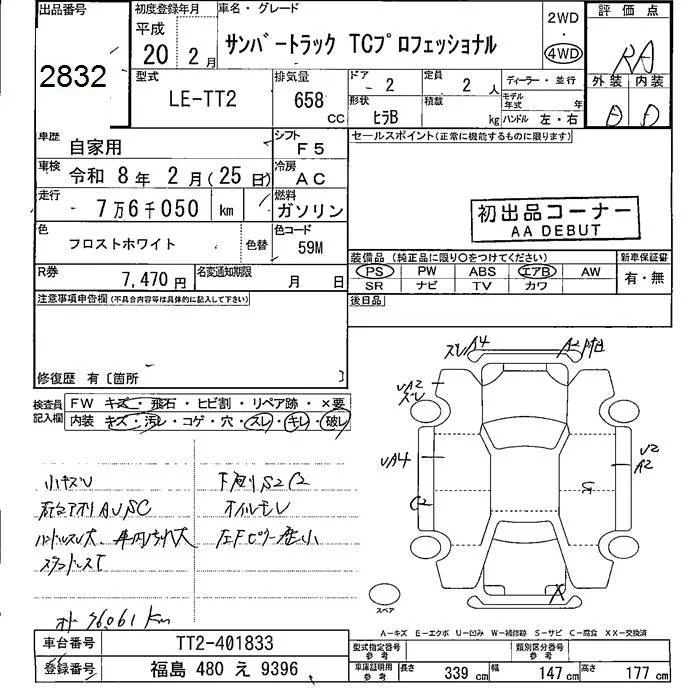 出品番号
2832
初度登録年月
平成
20年 2月
車名・グレード
サンバートラック TCプロフェッショナル
2WD
・
4WD
評価点
RA
外装 内装
D D
型式
LE-TT2
排気量
658
CC
ドア
2
定員
2 人
ディーラー・並行
形状
ヒラB
積載
kg
モデル年式
年
ハンドル 左・右
車歴
自家用
シフト
F5
車検
令和 8年 2月(25日)
冷房
AC
走行
7万6千050 km
燃料
ガソリン
色
フロストホワイト
色替
色コード
59M
R券
7,470円
名変通知期限
月 日
セールスポイント(正常に機能するものに限ります)
初出品コーナー
AA DEBUT
装備品(純正品に限り○をつけてください)
PS PW ABS エアB AW
SR ナビ TV カワ
新車保証書
有・無
後日品
注意事項申告欄(不具合内容等は具体的に記入して下さい)
修復歴 有〔箇所 〕
検査員記入欄
FW キズ・飛石・ヒビ割・リペア跡・×要
内装 キズ・汚レ・コゲ・穴・スレ・キレ・破レ
小キズU
下廻りS2C2
オイルモレ
ハンドルスレ大、車内汚れ大
スタッドレスT
76061km
スレA4
UA2
スレ
UA4
C2
U2
A2
X
スペア
A-キズ E-エクボ U-凹み W-補修跡 S-サビ C-腐食 XX-交換済
車台番号
TT2-401833
登録番号
福島 480 え 9396
型式指定番号
参考
類別区分番号
参考
車庫証明用
参考
長さ 339 cm 幅 147 cm 高さ 177 cm